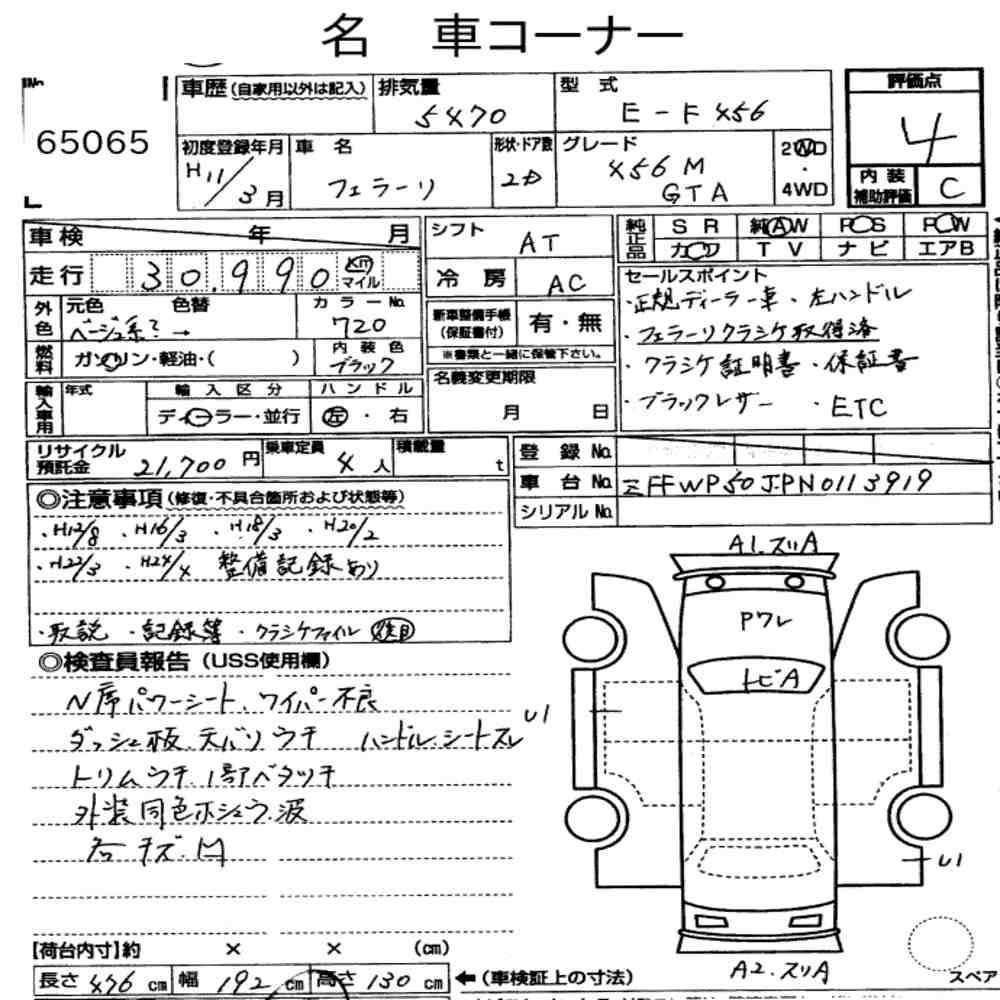 名 車コーナー
No.
65065
車歴 (自家用以外は記入)
排気量
5470
型 式
E-F456
評価点
4
内装補助評価
C
初度登録年月
H11/3月
車 名
フェラーリ
形状・ドア数
2D
グレード
456M
GTA
2WD
・
4WD
車検 年 月
走行 30,990 km マイル
外色
元色 色替
ベージュ系? →
カラーNo.
720
燃料
ガソリン・軽油・( )
内装色
ブラック
輸入車用
年式
輸入区分
ディーラー・並行
ハンドル
左・右
シフト
AT
冷房
AC
新車整備手帳
(保証書付)
有・無
※書類と一緒に保管下さい。
名義変更期限
月 日
純正品
SR 純AW PS PW
カワ TV ナビ エアB
セールスポイント
・正規ディーラー車・左ハンドル
・フェラーリクラシケ取得済
・クラシケ証明書・保証書
・ブラックレザー ・ETC
リサイクル預託金
21,700円
乗車定員
4人
積載量
t
登録No.
車台No.
ZFFWP50JPN0113919
シリアルNo.
◎注意事項 (修復・不具合箇所および状態等)
・H12/8 ・H16/3 ・H18/3 ・H20/2
・H22/3 ・H24/4 整備記録あり
・取説 ・記録簿 ・クラシケファイル
◎検査員報告 (USS使用欄)
N席パワーシート、ワイパー不良
ダッシュ板、天バリウキ ハンドル、シートスレ
トリムウキ 1部ベタツキ
外装同色ホシュウ、波
各キズ、M
A1.スリA
Pワレ
トビA
U1
U1
A2.スリA
スペア
【荷台内寸】約 × × (cm)
長さ 476 cm 幅 192 cm 高さ 130 cm
←(車検証上の寸法)